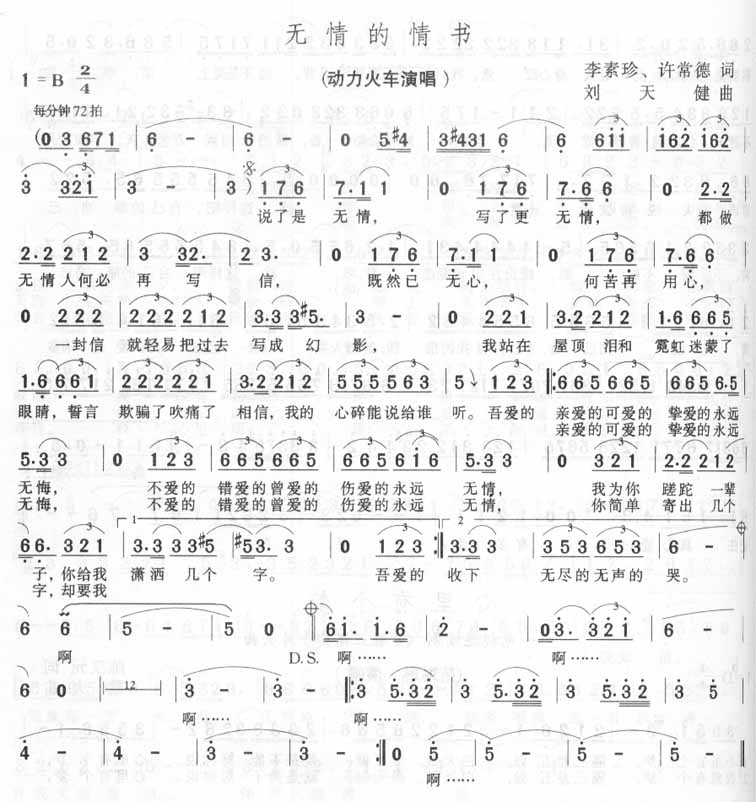 无情的情书
1=B 2/4
(动力火车演唱)
李素珍、许常德 词
刘天健 曲
每分钟72拍
(0 3 671 | 6 - | 6 - | 0 5#4 | 3#431 6 | 6 611 | 162 162
3 321 | 3 - | 3) 176 | 7·1 1 | 0 176 | 7·6 6 | 0 2·2
说了是 无情, 写了更 无情, 都做
2·2 212 | 3 32· | 2 3· | 0 176 | 7·1 1 | 0 176 | 7·6 6
无情人何必 再 写 信, 既然已 无心, 何苦再 用心,
0 222 | 222221 | 3·3 3#5· | 3· 0 | 0 222 | 3·2 212 | 1·6 661
一封信 就轻易把过去 写成 幻 影, 我站在 屋顶泪和 霓虹迷蒙了
1·6 661 | 222221 | 3·2 212 | 555563 | 5 123 | 665665 | 665 6·5
眼睛,誓言 欺骗了吹痛了 相信,我的 心碎能说给谁 听。吾爱的 亲爱的可爱的 挚爱的永远
亲爱的可爱的 挚爱的永远
5·3 3 | 0 123 | 665665 | 665616 | 5·3 3 | 0 321 | 2·2 212
无悔, 不爱的 错爱的曾爱的 伤爱的永远 无情, 我为你 蹉跎 一辈
无悔, 不爱的 错爱的曾爱的 伤爱的永远 无情, 你简单 寄出 几个
66· 321 | 3·3 33#5 | #53· 3 | 0 123 :| 3·3 3 | 353653 | 6 -
子,你给我 潇洒 几个 字。 吾爱的 收下 无尽的无声的 哭。
字,却要我
6 6 | 5 - | 5 0 | 61· 1·6 | 2 - | 03· 321 | 6 -
啊 D.S. 啊…… 啊……
6 0 | 12 | 3 - | 3 - |: 3 5·32 | 3 5·32 | 3 5·32 | 3 5
啊…… 啊……
4 - | 4 - | 3 - | 3 - :| 0 5 | 5 - | 5 - | 5 -
啊……